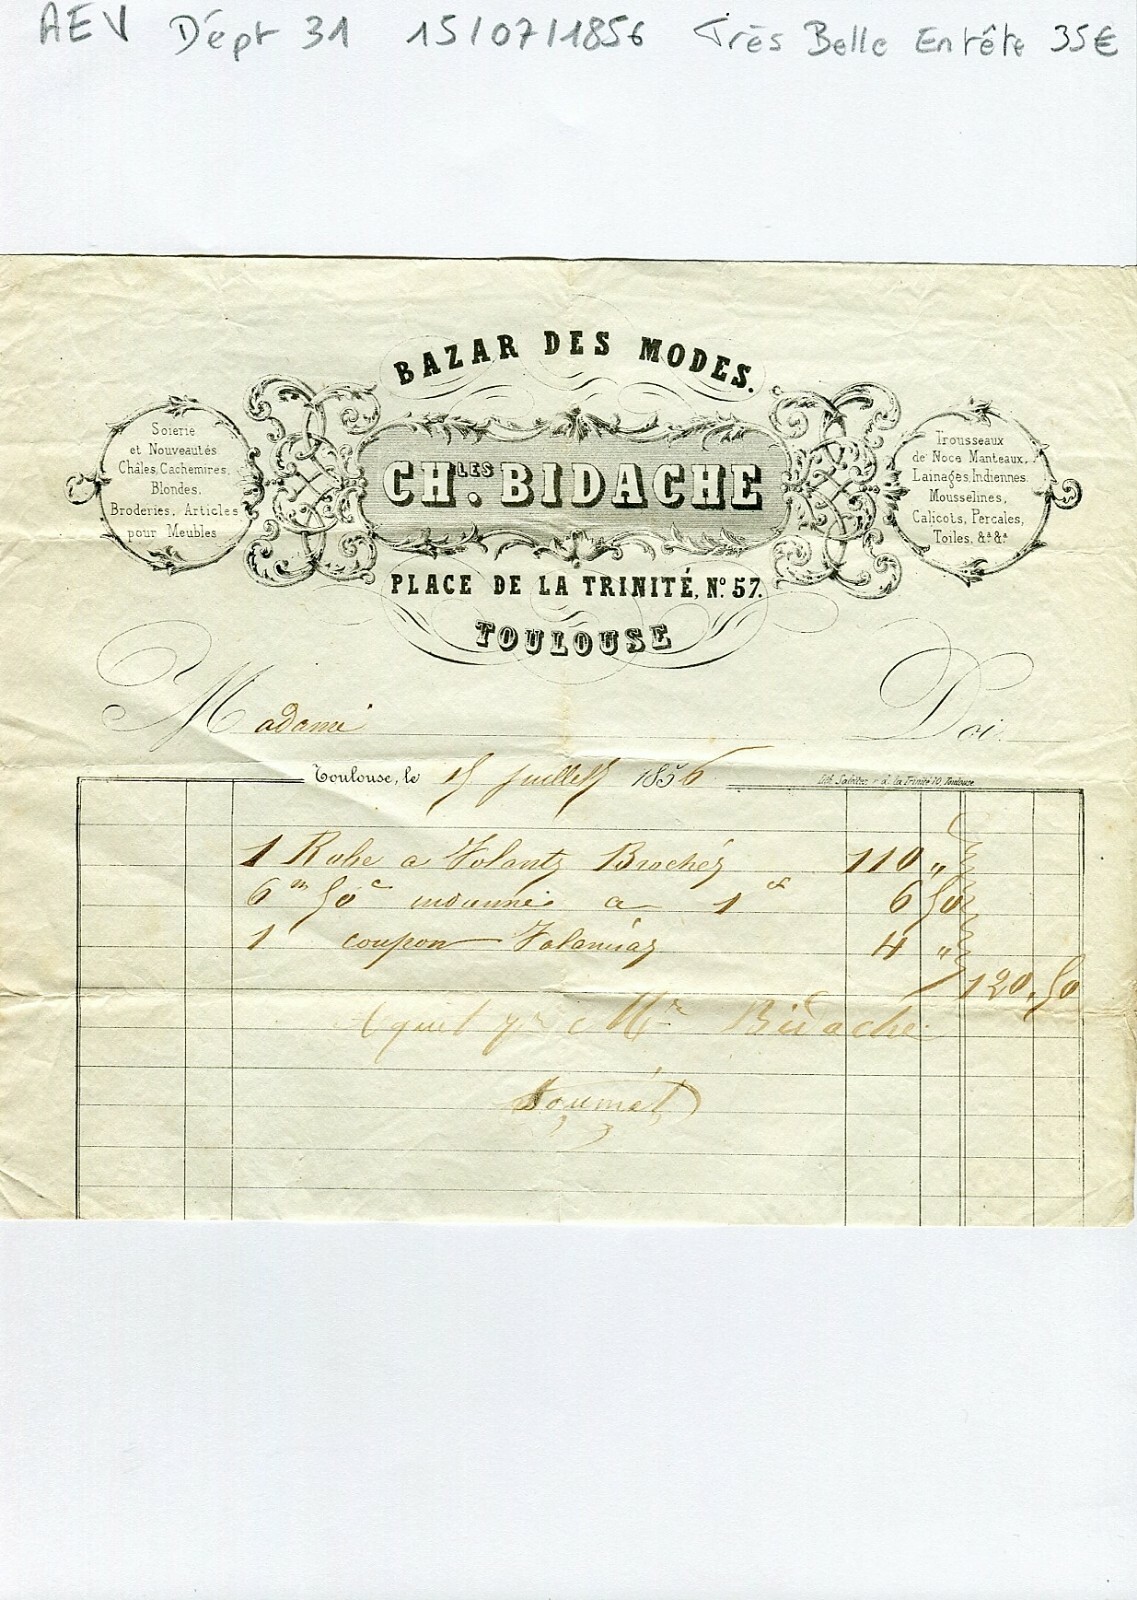 AEV Dépt 31 15/07/1856 Très Belle Entête 35€
BAZAR DES MODES.
Soierie
et Nouveautés
Châles, Cachemires,
Blondes,
Broderies, Articles
pour Meubles
CH.LES BIDACHE
Trousseaux
de Noce Manteaux,
Lainages, Indiennes
Mousselines,
Calicots, Percales,
Toiles, &a &a
PLACE DE LA TRINITÉ, No. 57.
TOULOUSE
Madame Doi
Toulouse, le 15 Juillet 1856
Lith. la Trinité 10, Toulouse
1 Robe a Volants Brochés 110 "
6 m 50 c a 1 6 50
1 coupon 4 "
120,50
Mr Bidache